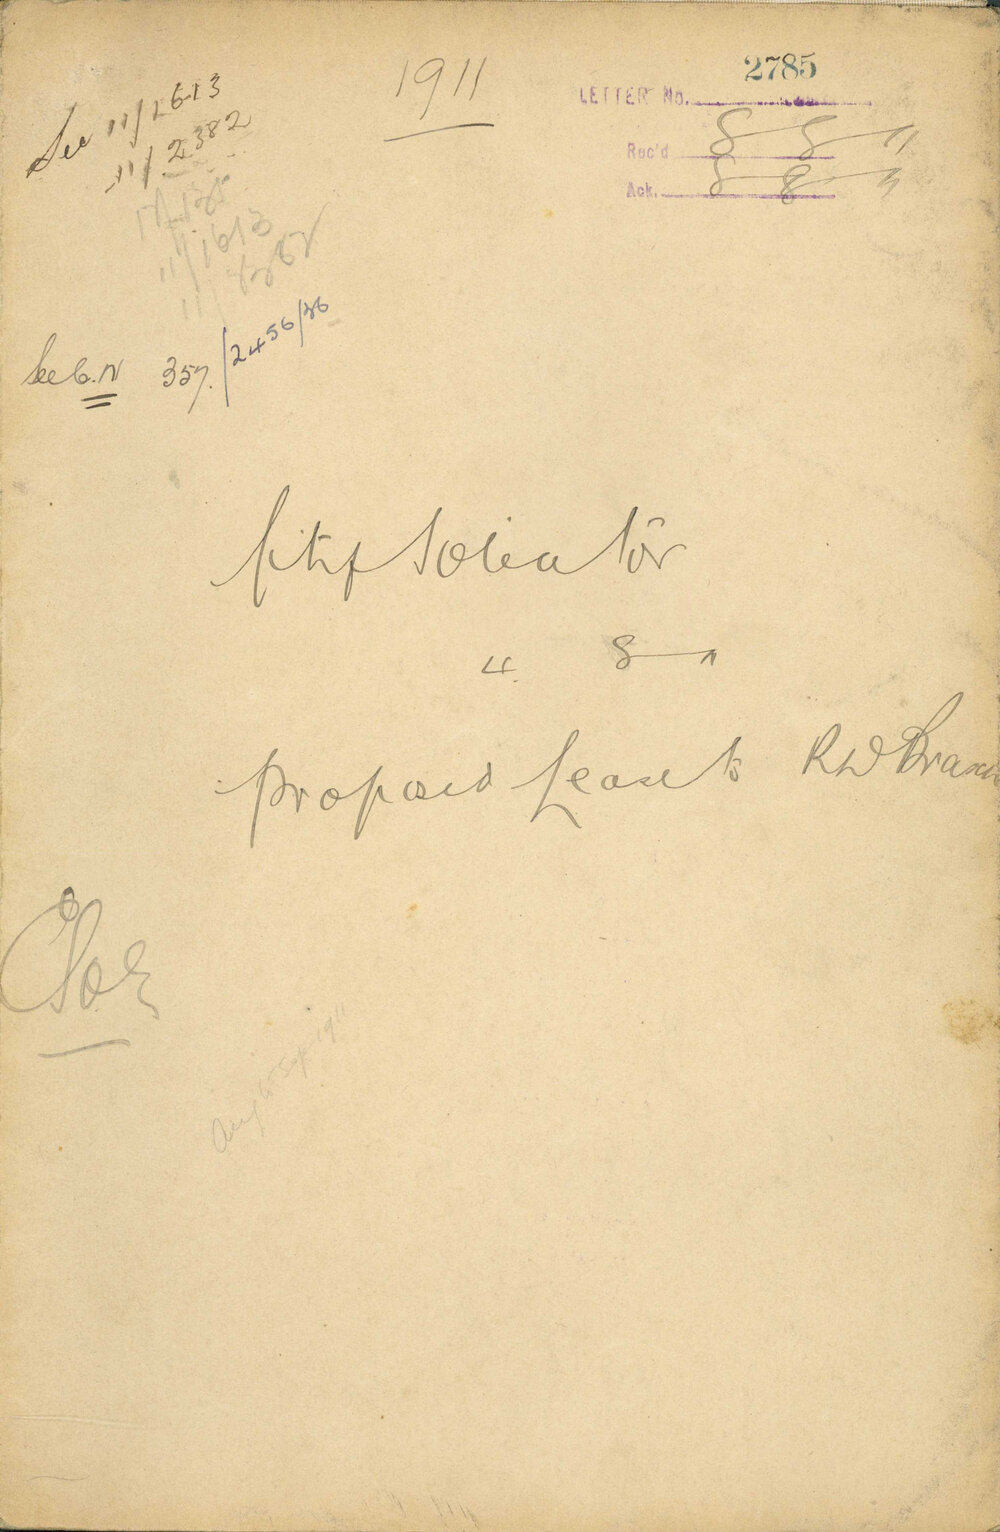 1911
2785
LETTER No.
Rec'd 8 8 11
Ack. 8 8 11
See 11/1613
11/2382
11/1613
See C.N 357/2456/36
City Solicitor
4 8 11
Proposed Lease to R W
Aug to Sep 1911